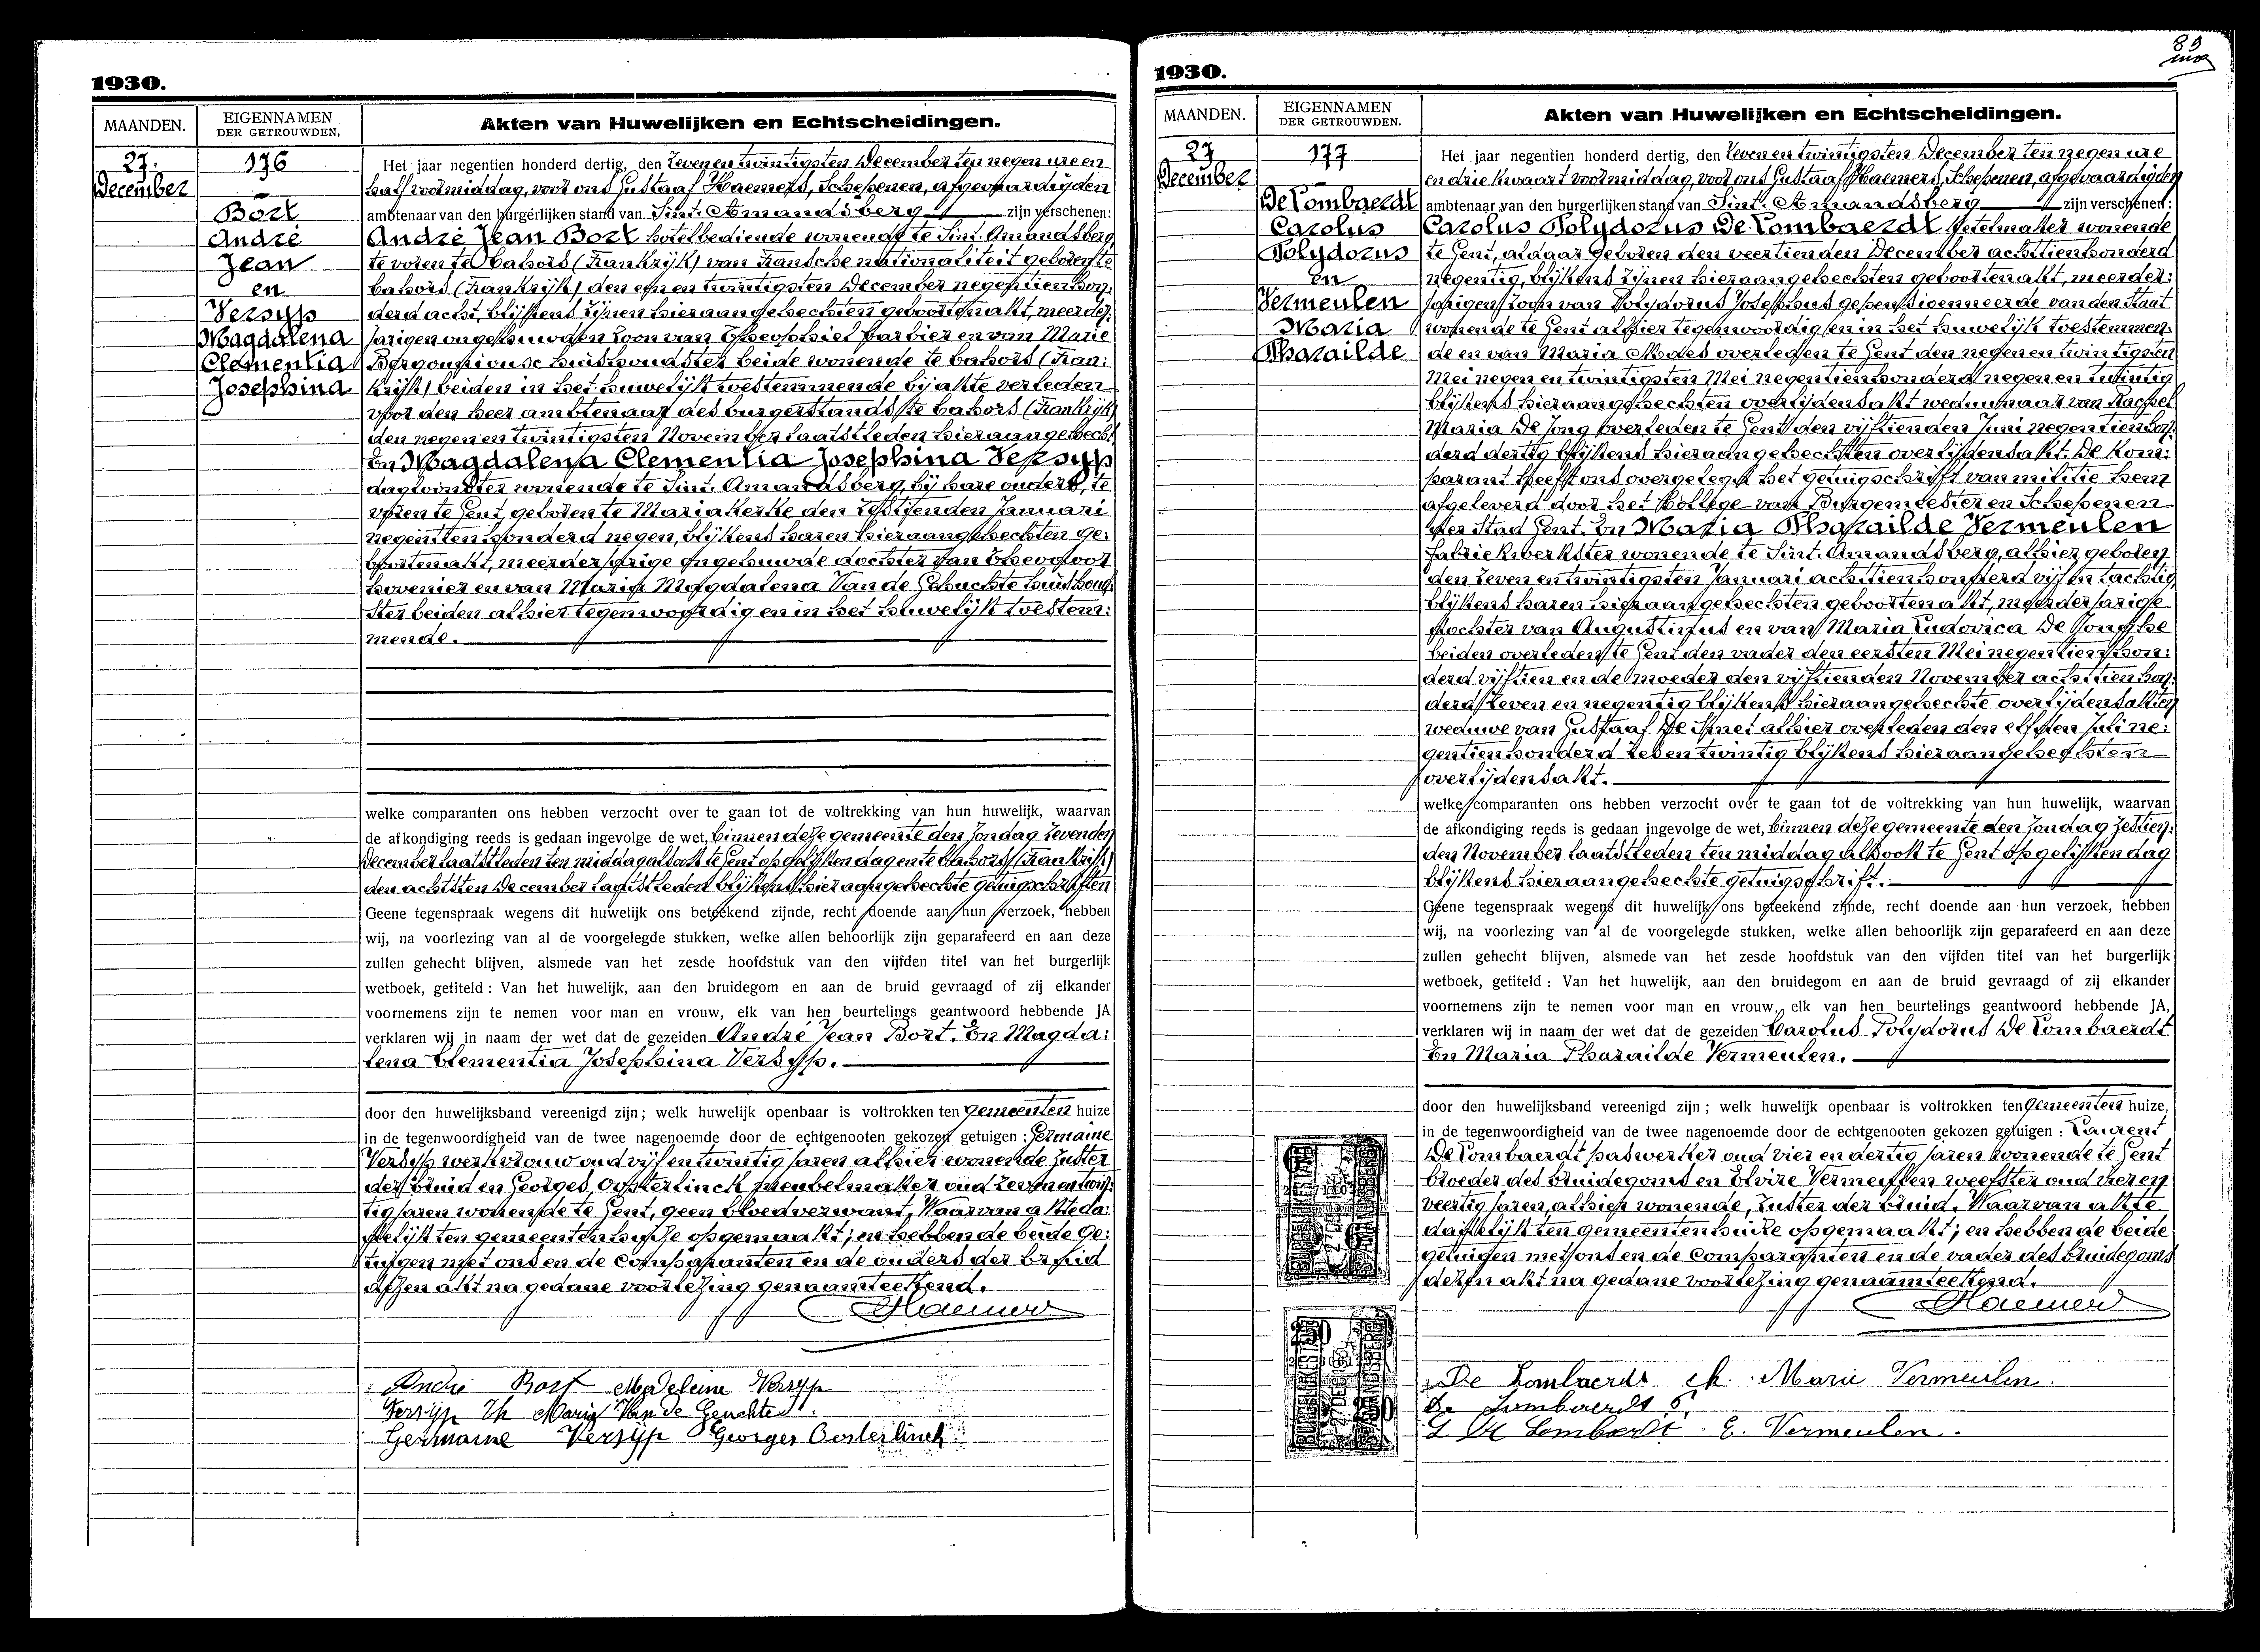 1930.
MAANDEN.
EIGENNAMEN
DER GETROUWDEN.
Akten van Huwelijken en Echtscheidingen.
27.
December
176
Bort
André
Jean
en
Versyp
Magdalena
Clementia
Josephina
Het jaar negentien honderd dertig, den zeven en twintigsten December ten negen ure en
half voormiddag, voor ons Gustaaf Haemers, Schepenen, afgevaardigden
ambtenaar van den burgerlijken stand van Sint. Amandsberg zijn verschenen:
André Jean Bort hotelbediende wonende te Sint. Amandsberg
te voren te Cahors (Frankrijk) van Fransche nationaliteit geboren te
Cahors (Frankrijk) den een en twintigsten December negentienhon:
derd acht, blijkens zijnen hieraangehechten geboortenakt, meerder:
jarigen ongehuwden zoon van Théophiel barbier en van Marie
huishoudster beide wonende te Cahors (Fran:
krijk) beiden in het huwelijk toestemmende bij akte verleden
voor den heer ambtenaar des burgerstands te Cahors (Frankrijk)
den negen en twintigsten November laatstleden hieraangehecht.
En Magdalena Clementia Josephina Versyp
dagwindster wonende te Sint. Amandsberg, bij hare ouders, te
voren te Gent, geboren te Mariakerke den zestienden Januari
negentienhonderd negen, blijkens haren hieraangehechten ge:
boortenakt, meerderjarige ongehuwde dochter van Theodoor
hovenier en van Maria Magdalena Van de Gehuchte huishoud:
ster beiden alhier tegenwoordig en in het huwelijk toestem:
mende.
welke comparanten ons hebben verzocht over te gaan tot de voltrekking van hun huwelijk, waarvan
de afkondiging reeds is gedaan ingevolge de wet, binnen deze gemeente den Zondag zevenden
December laatstleden ten middag alsook te Gent op gelijken dag en te Cahors (Frankrijk)
den achtsten December laatstleden blijkens hieraangehechte getuigschriften
Geene tegenspraak wegens dit huwelijk ons beteekend zijnde, recht doende aan hun verzoek, hebben
wij, na voorlezing van al de voorgelegde stukken, welke allen behoorlijk zijn geparafeerd en aan deze
zullen gehecht blijven, alsmede van het zesde hoofdstuk van den vijfden titel van het burgerlijk
wetboek, getiteld : Van het huwelijk, aan den bruidegom en aan de bruid gevraagd of zij elkander
voornemens zijn te nemen voor man en vrouw, elk van hen beurtelings geantwoord hebbende JA
verklaren wij in naam der wet dat de gezeiden André Jean Bort. En Magda:
lena Clementia Josephina Versyp.
door den huwelijksband vereenigd zijn ; welk huwelijk openbaar is voltrokken ten Gemeenten huize
in de tegenwoordigheid van de twee nagenoemde door de echtgenooten gekozen getuigen : Germaine
Versyp werkvrouw oud vijf en twintig jaren alhier wonende zuster
der bruid en Georges Oosterlinck meubelmaker oud zeven en twin:
tig jaren wonende te Gent, geen bloedverwant. Waarvan akte da:
delijk ten gemeentenhuize opgemaakt; en hebben de beide ge:
tuigen met ons en de Comparanten en de ouders der bruid
dezen akt na gedane voorlezing genaamteekend.
Haemers
André Bort Madeleine Versyp
Versyp Th Marie Van de Genchte
Germaine Versyp Georges Oosterlinck
89
1930.
MAANDEN.
EIGENNAMEN
DER GETROUWDEN.
Akten van Huwelijken en Echtscheidingen.
27
December
177
De Lombaerdt
Carolus
Polydorus
en
Vermeulen
Maria
Pharaïlde
Het jaar negentien honderd dertig, den zeven en twintigsten December ten negen ure
en drie kwaart voormiddag, voor ons Gustaaf Haemers, Schepenen, afgevaardigden
ambtenaar van den burgerlijken stand van Sint. Amandsberg zijn verschenen :
Carolus Polydorus De Lombaerdt ketelmaker wonende
te Gent, aldaar geboren den veertienden December achttienhonderd
negentig, blijkens zijnen hieraangehechten geboortenakt, meerder:
jarigen zoon van Polydorus Josephus gepensioenneerde van den Staat
wonende te Gent alhier tegenwoordig en in het huwelijk toestemmen:
de en van Maria Modes overleden te Gent den negen en twintigsten
Mei negen en twintigsten Mei negentienhonderd negen en twintig
blijkens hieraangehechten overlijdensakt weduwnaar van Rachel
Maria De Jong overleden te Gent den vijftienden Juni negentienhon:
derd dertig blijkens hieraangehechten overlijdensakt. De Kom:
parant heeft ons overgelegd het getuigschrift van militie hem
afgeleverd door het Kollege van Burgemeester en Schepenen
der Stad Gent. En Maria Pharaïlde Vermeulen
fabriekwerkster wonende te Sint. Amandsberg, alhier geboren
den zeven en twintigsten Januari achttienhonderd vijf en tachtig
blijkens haren hieraangehechten geboortenakt, meerderjarige
dochter van Augustinus en van Maria Ludovica De Jonghe
beiden overleden te Gent den vader den eersten Mei negentienhon:
derd vijftien en de moeder den vijftienden November achttienhon:
derd zeven en negentig blijkens hieraangehechte overlijdensakten
weduwe van Gustaaf De Smet alhier overleden den elfsten Juli ne:
gentienhonderd zeben twintig blijkens hieraangehechten
overlijdensakt.
welke comparanten ons hebben verzocht over te gaan tot de voltrekking van hun huwelijk, waarvan
de afkondiging reeds is gedaan ingevolge de wet, binnen deze gemeente den Zondag zestien:
den November laatstleden ten middag alsook te Gent op gelijken dag
blijkens hieraangehechte getuigschrift.
Geene tegenspraak wegens dit huwelijk ons beteekend zijnde, recht doende aan hun verzoek, hebben
wij, na voorlezing van al de voorgelegde stukken, welke allen behoorlijk zijn geparafeerd en aan deze
zullen gehecht blijven, alsmede van het zesde hoofdstuk van den vijfden titel van het burgerlijk
wetboek, getiteld : Van het huwelijk, aan den bruidegom en aan de bruid gevraagd of zij elkander
voornemens zijn te nemen voor man en vrouw, elk van hen beurtelings geantwoord hebbende JA,
verklaren wij in naam der wet dat de gezeiden Carolus Polydorus De Lombaerdt
En Maria Pharaïlde Vermeulen.
door den huwelijksband vereenigd zijn ; welk huwelijk openbaar is voltrokken ten Gemeenten huize,
in de tegenwoordigheid van de twee nagenoemde door de echtgenooten gekozen getuigen : Laurent
De Lombaerdt paswerker oud vier en dertig jaren wonende te Gent
broeder des bruidegoms en Elvire Vermeulen weefster oud vier en
veertig jaren, alhier wonende, zuster der bruid. Waarvan akte
dadelijk ten gemeentenhuize opgemaakt; en hebben de beide
getuigen met ons en de Comparanten en de vader des bruidegoms
dezen akt na gedane voorlezing genaamteekend.
Haemers
De Lombaerdt ch. Marie Vermeulen.
De Lombaerdt P.
L De Lombardt E. Vermeulen.